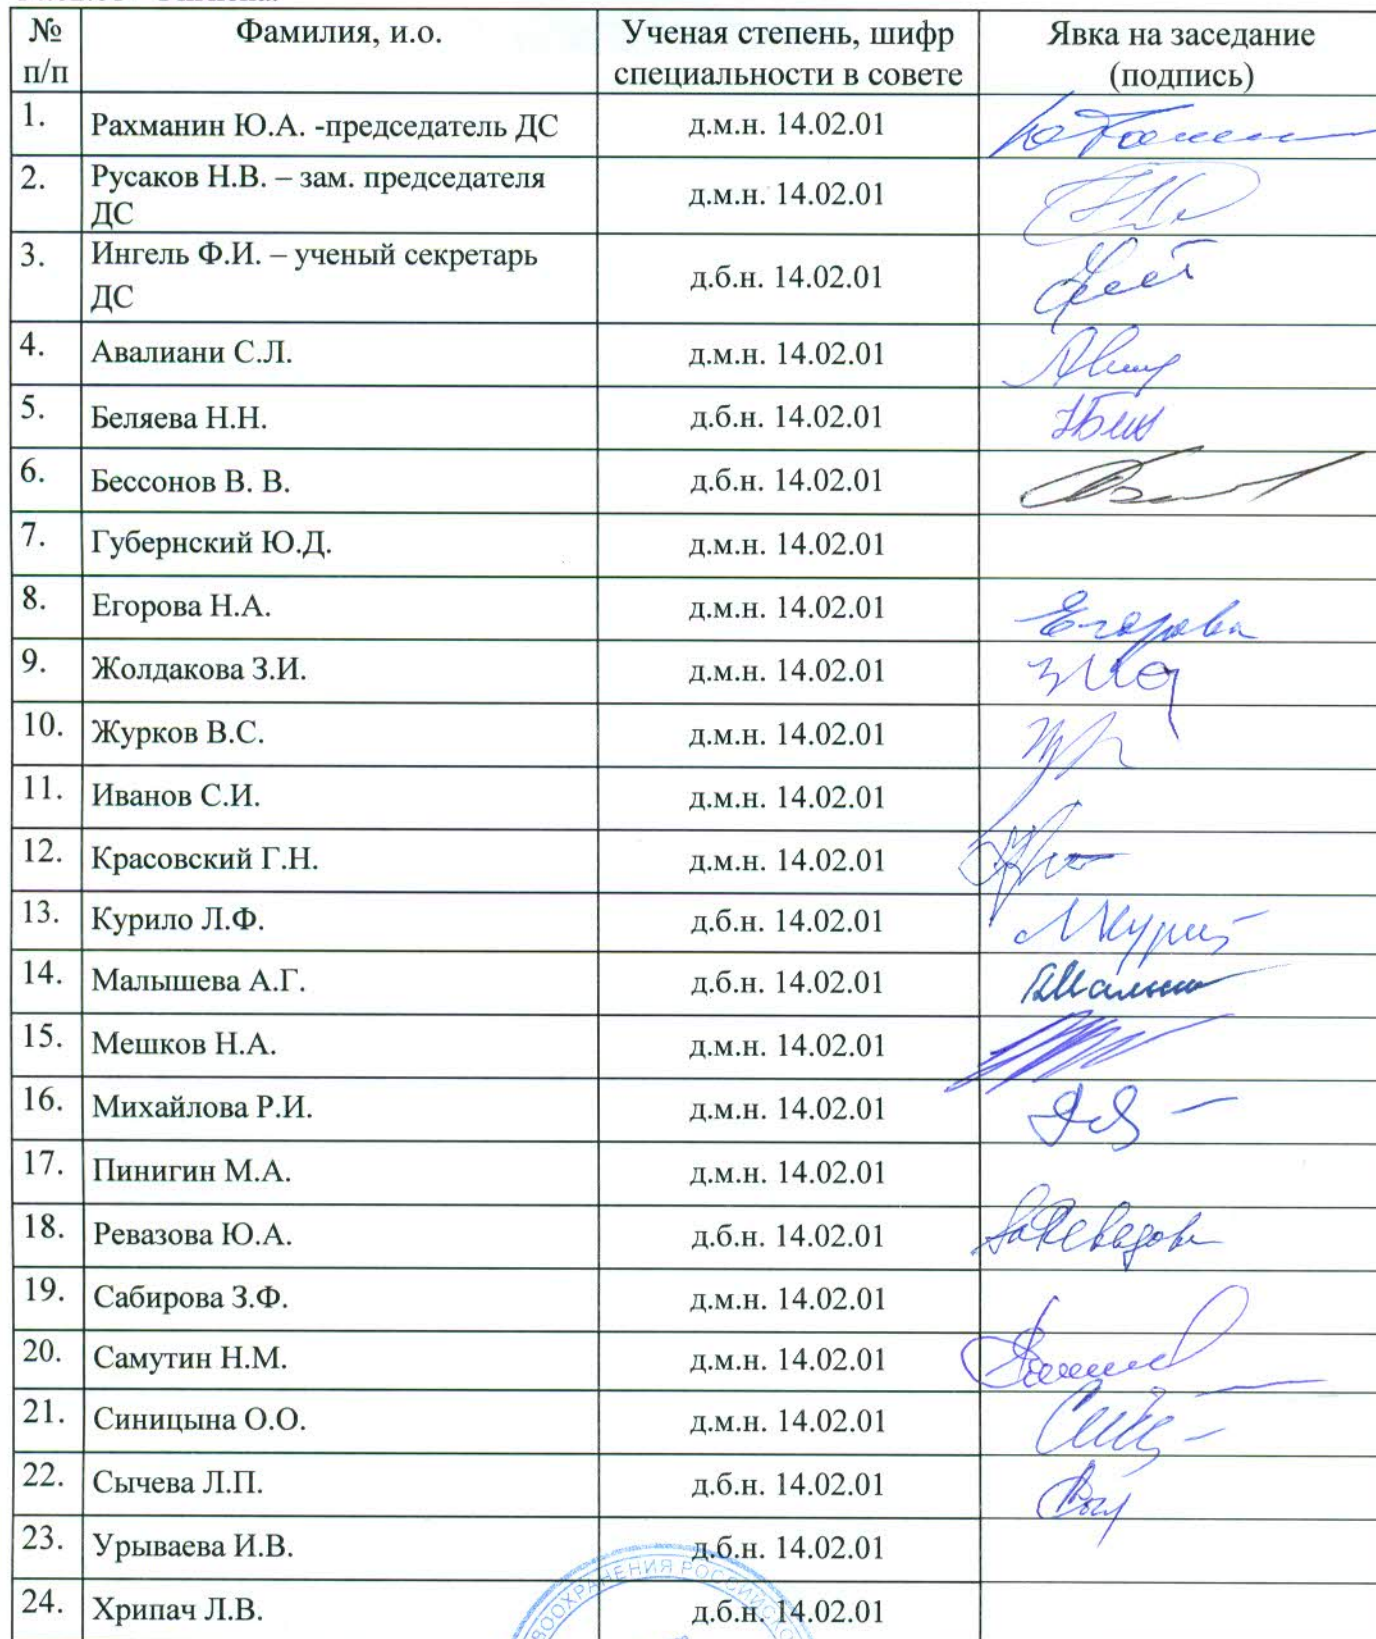 № п/п Фамилия, и.о. Ученая степень, шифр специальности в совете Явка на заседание (подпись)
1. Рахманин Ю.А. -председатель ДС д.м.н. 14.02.01
2. Русаков Н.В. – зам. председателя ДС д.м.н. 14.02.01
3. Ингель Ф.И. – ученый секретарь ДС д.б.н. 14.02.01
4. Авалиани С.Л. д.м.н. 14.02.01
5. Беляева Н.Н. д.б.н. 14.02.01
6. Бессонов В. В. д.б.н. 14.02.01
7. Губернский Ю.Д. д.м.н. 14.02.01
8. Егорова Н.А. д.м.н. 14.02.01 Егорова
9. Жолдакова З.И. д.м.н. 14.02.01
10. Журков В.С. д.м.н. 14.02.01
11. Иванов С.И. д.м.н. 14.02.01
12. Красовский Г.Н. д.м.н. 14.02.01
13. Курило Л.Ф. д.б.н. 14.02.01
14. Малышева А.Г. д.б.н. 14.02.01
15. Мешков Н.А. д.м.н. 14.02.01
16. Михайлова Р.И. д.м.н. 14.02.01
17. Пинигин М.А. д.м.н. 14.02.01
18. Ревазова Ю.А. д.б.н. 14.02.01
19. Сабирова З.Ф. д.м.н. 14.02.01
20. Самутин Н.М. д.м.н. 14.02.01
21. Синицына О.О. д.м.н. 14.02.01
22. Сычева Л.П. д.б.н. 14.02.01
23. Урываева И.В. д.б.н. 14.02.01
24. Хрипач Л.В. д.б.н. 14.02.01